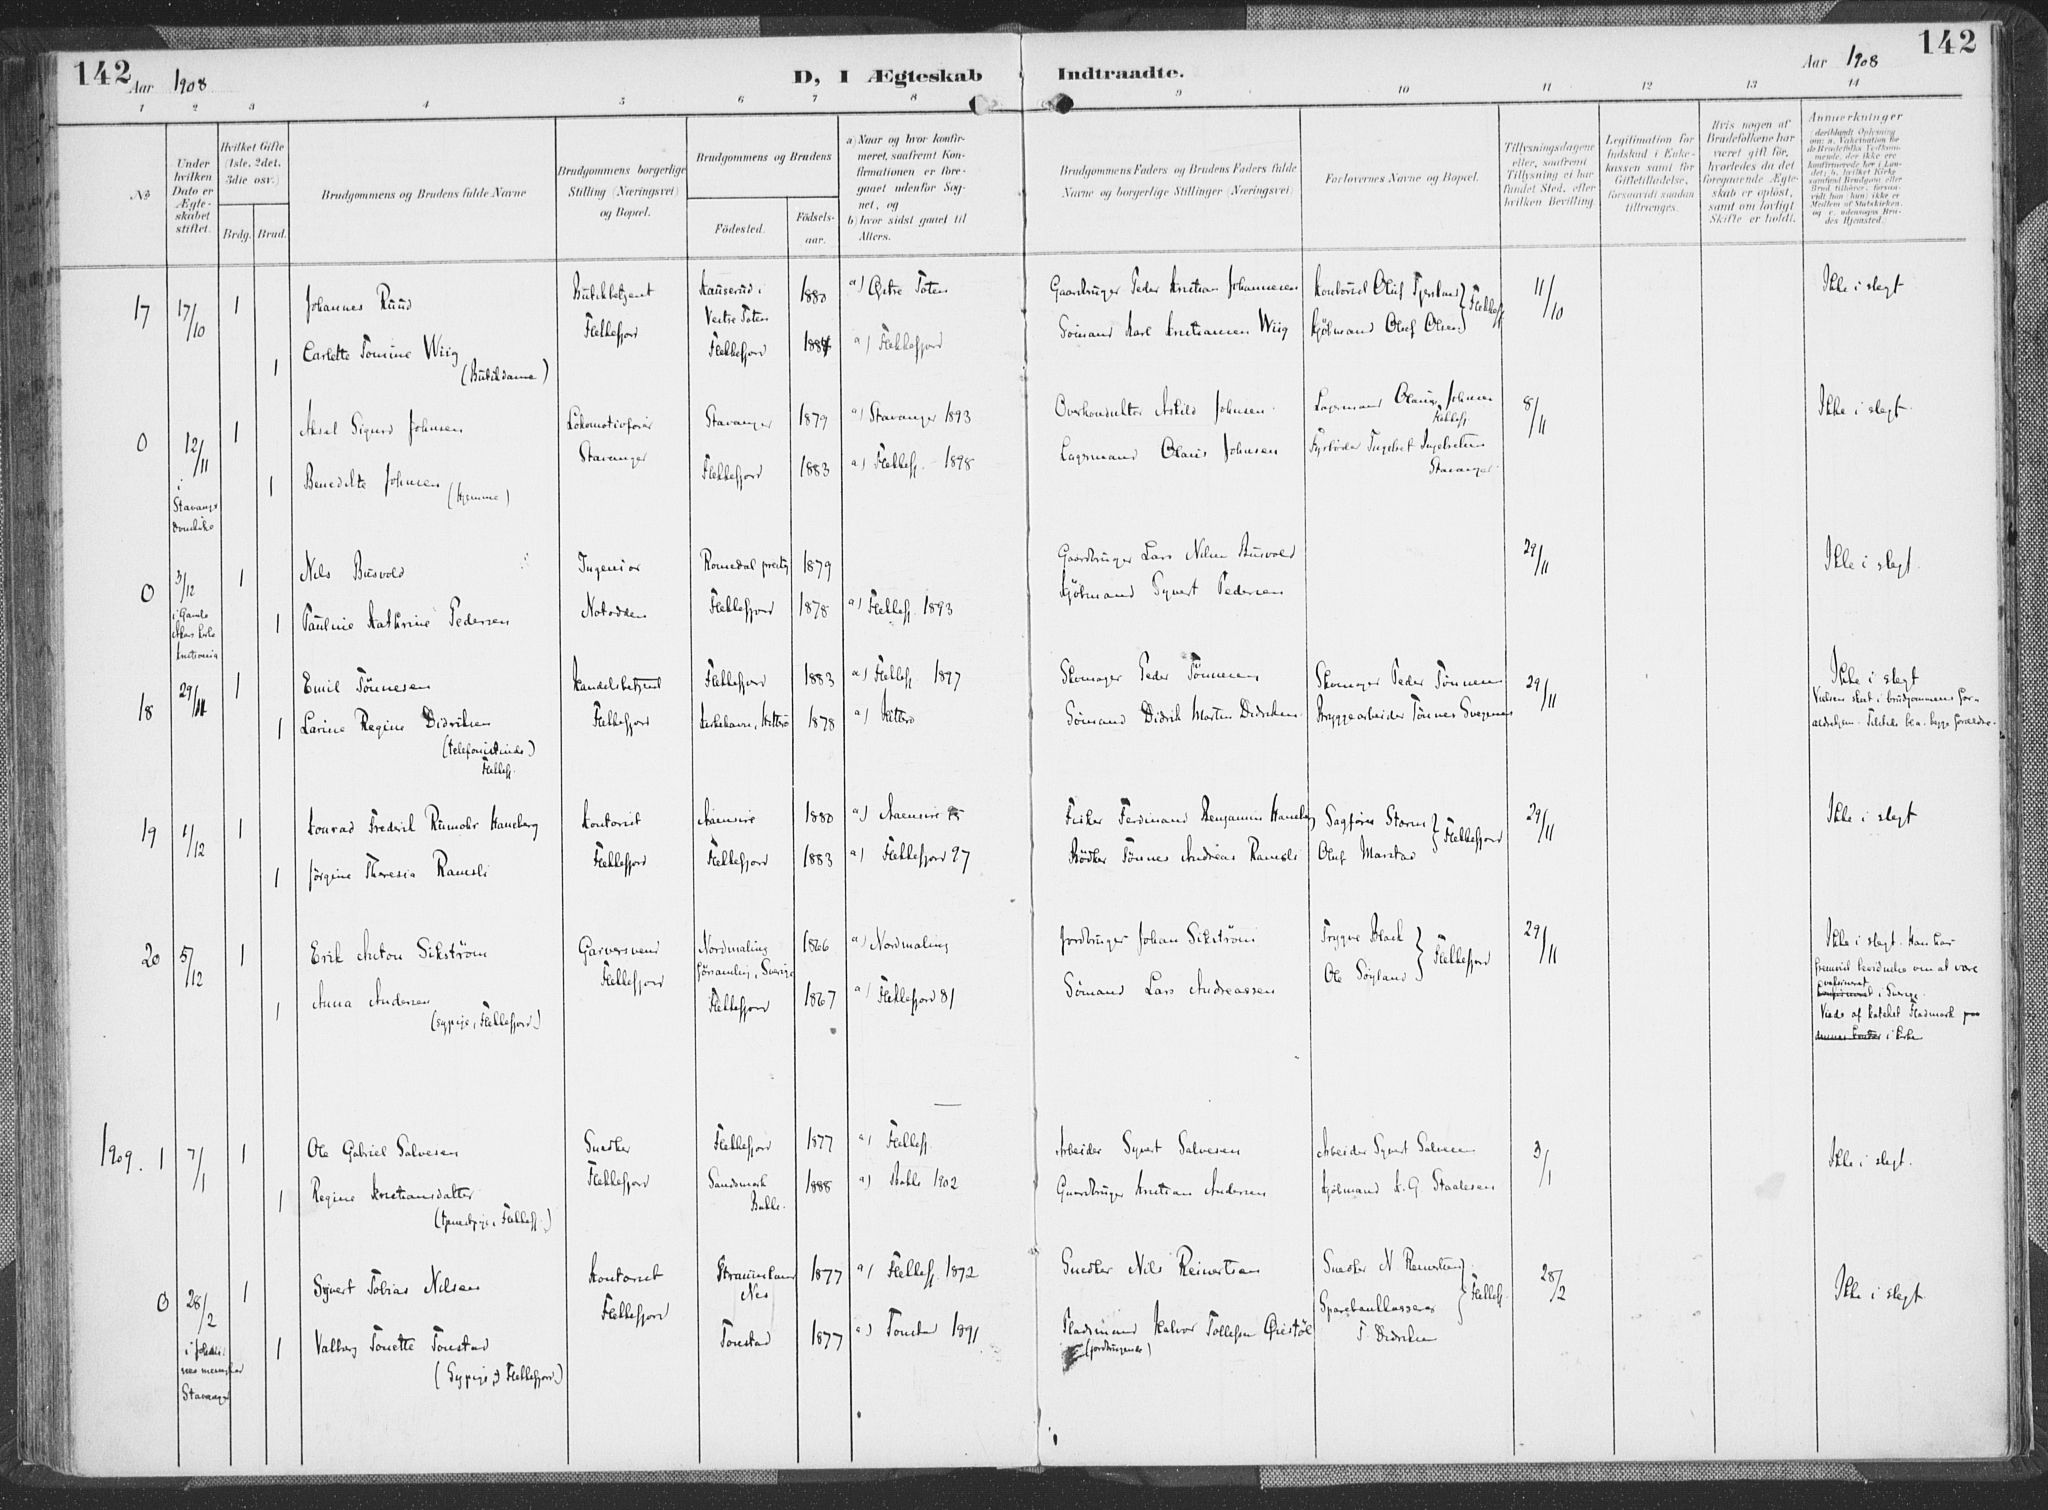 142 Aar 1908
D, I Ægteskab Indtraadte.
Aar 1908 142
1 2 3 4 5 6 7 8 9 10 11 12 13 14
No
Under hvilken Dato er Ægteskabet stiftet.
Hvilket Gifte (1ste, 2det, 3die osv.)
Brdg. Brud.
Brudgommens og Brudens fulde Navne
Brudgommens borgerlige Stilling (Næringsvei) og Bopæl.
Brudgommens og Brudens
Fødested. Fødselsaar.
a) Naar og hvor konfirmeret, saafremt Konfirmationen er foregaaet udenfor Sognet, og
b) hvor sidst gaaet til Alters.
Brudgommens Faders og Brudens Faders fulde Navne og borgerlige Stillinger (Næringsvei)
Forlovernes Navne og Bopæl.
Tillysningsdagene eller, saafremt Tillysning ei har fundet Sted, efter hvilken Bevilling.
Legitimation for Indskud i Enkekassen samt for Giftetilladelse, forsaavidt saadan tiltrænges.
Hvis nogen af Brudefolkene har været gift før, hvorledes da det foregaaende Ægteskab er opløst, samt om lovligt Skifte er holdt.
Anmerkninger
17 17/10 1 Johannes Ruud Butikbetjent Hauserud i Vestre Toten 1880 a) Østre Toten Gaardbruger Peder Kristian Johannesen Kontorist Oluf Fjersland 11/10 Ikke i slegt
1 Carlette Tomine Wiig (Butikdame) Flekkefjord Flekkefjord 1884 a) Flekkefjord Sømand Karl Kristiansen Wiig Kjøbmand Oluf Olsen Flekkefj
0 12/11 1 Aksel Sigurd Johnsen Lokomotivfører Stavanger 1879 a) Stavanger 1893 Overkonduktør Askild Johnsen Lagermand Olaus Johnsen Flekkefj 8/11 Ikke i slegt.
i Stavanger Domkirke 1 Benedikte Johnsen (hjemme) Stavanger Flekkefjord 1883 a) Flekkefj. 1898 Lagermand Olaus Johnsen Fyrbøder Ingebret Ingebretsen Stavanger
0 3/12 1 Nils Busvold Ingeniør Romedal prestg 1879 Gaardbruger Lars Nilsen Busvold 29/11 Ikke i slegt.
i Gamle Akers kirke Kristiania 1 Pauline Kathrine Pedersen Notodden Flekkefjord 1878 a) Flekkefj. 1893 Kjøbmand Syvert Pedersen
18 29/11 1 Emil Tönnesen Handelsbetjent Flekkefjord 1883 a) Flekkefj 1897 Skomager Peder Tönnesen Skomager Peder Tönnesen 29/11 Ikke i slegt
1 Larine Regine Didriksen (telefonistinde) Flekkefj. Flekkefjord Kirkehavn, Hitterø 1878 a) Hitterø Sømand Didrik Martin Didriksen Bryggearbeider Tönnes Svegnes
19 1/12 1 Konrad Fredrik Rumohr Haneberg Kontorist Aaensire 1880 a) Aaensire 95 Fisker Ferdinand Benjamin Haneberg Sagfører Storm 29/11 Ikke i slegt
1 Jørgine Theresia Ramsli Flekkefjord Flekkefjord 1883 a) Flekkefjord 97 Bødker Tönnes Andreas Ramsli Oluf Marstad Flekkefjord
20 5/12 1 Erik Anton Sikström Garversvend Nordmaling församling, Sverige 1866 a) Nordmaling Jordbruger Johan Sikström Trygve Black 29/11 Ikke i slegt. Han har
1 Anna Andersen (sypige, Flekkefjord) Flekkefjord Flekkefjord 1867 a) Flekkefjord 81 Sømand Lars Andreassen Ole Søyland Flekkefjord konfirmeret i Sverige.
Viede af kateket Fladmark
i kirke
1909. 1 7/1 1 Ole Gabriel Salvesen Snedker Flekkefjord 1877 a) Flekkefj. Arbeider Syvert Salvesen Arbeider Syvert Salvesen 3/1 Ikke i slegt.
1 Regine Kristiansdatter (tjenestpige, Flekkefj.) Flekkefjord Sandsmark Bakke. 1888 a) Bakke 1902 Gaardbruger Kristian Andersen Kjøbmand K. G Staalesen
0 28/2 1 Syvert Tobias Nilsen Kontorist Straumland Nes 1877 a) Flekkefj. 1872 Snedker Nils Reinertsen Snedker N Reinertsen 28/2 Ikke i slegt.
Stavanger 1 Valborg Tonette Tonstad (Sypige, Flekkefjord) Flekkefjord Tonstad 1877 a) Tonstad 1891 Pladsmand Halvor Tollefsen Østøl (jordbrugende) Sparebankkasserer T. Didriksen Flekkefj.